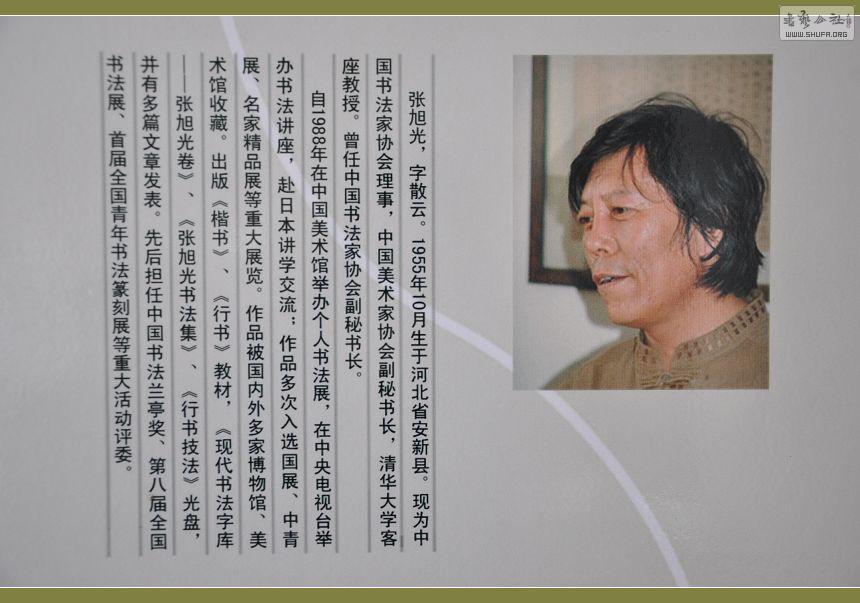 张旭光，字散云。1955年10月生于河北省安新县。现为中
国书法家协会理事，中国美术家协会副秘书长，清华大学客
座教授。曾任中国书法家协会副秘书长。
自1988年在中国美术馆举办个人书法展，在中央电视台举
办书法讲座，赴日本讲学交流；作品多次入选国展、中青
展、名家精品展等重大展览。作品被国内外多家博物馆、美
术馆收藏。出版《楷书》、《行书》教材，《现代书法字库
——张旭光卷》、《张旭光书法集》、《行书技法》光盘，
并有多篇文章发表。先后担任中国书法兰亭奖、第八届全国
书法展、首届全国青年书法篆刻展等重大活动评委。
书艺公社
WWW.SHUFA.ORG